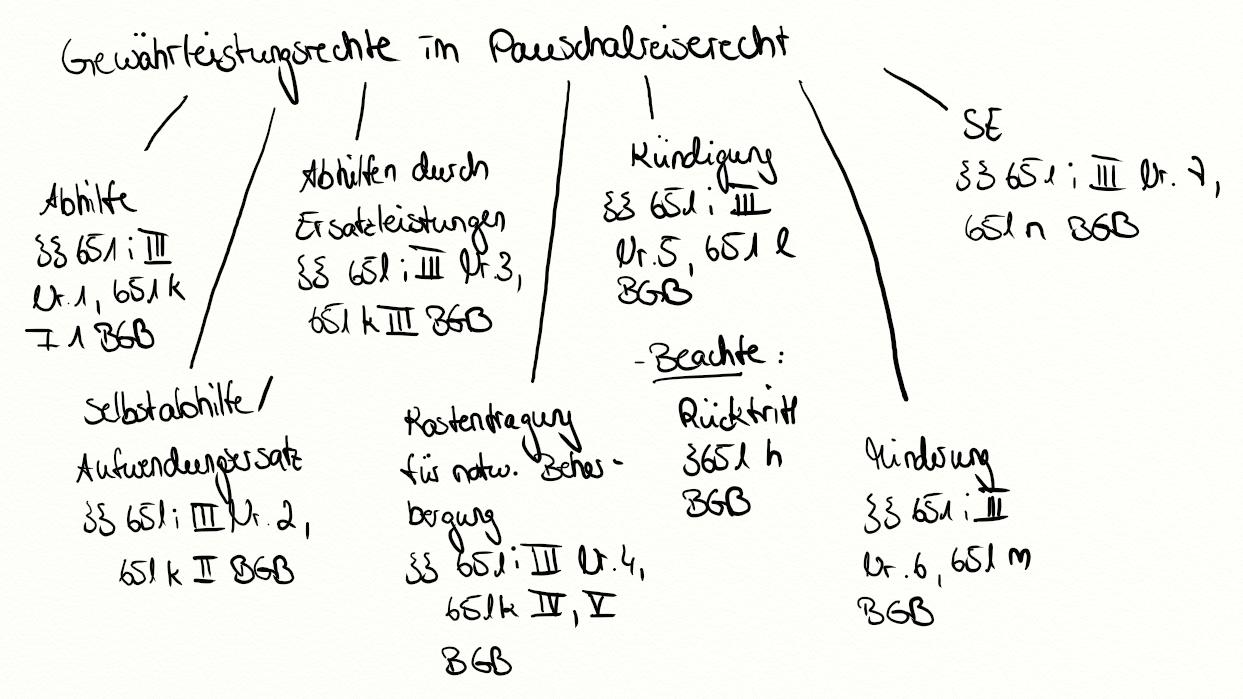 Gewährleistungsrechte im Pauschalreiserecht
Abhilfe
§§ 651 i III
Nr. 1, 651 k
I 1 BGB
Selbstabhilfe/
Aufwendungersatz
§§ 651 i III Nr. 2,
651 k II BGB
Abhilfen durch
Ersatzleistungen
§§ 651 i III Nr. 3,
651 k III BGB
Kostentragung
für notw. Beher-
bergung
§§ 651 i III Nr. 4,
651 k IV, V
BGB
Kündigung
§§ 651 i III
Nr. 5, 651 l
BGB
- Beachte:
Rücktritt
§ 651 h
BGB
Minderung
§§ 651 i III
Nr. 6, 651 m
BGB
SE
§§ 651 i III Nr. 7,
651 n BGB